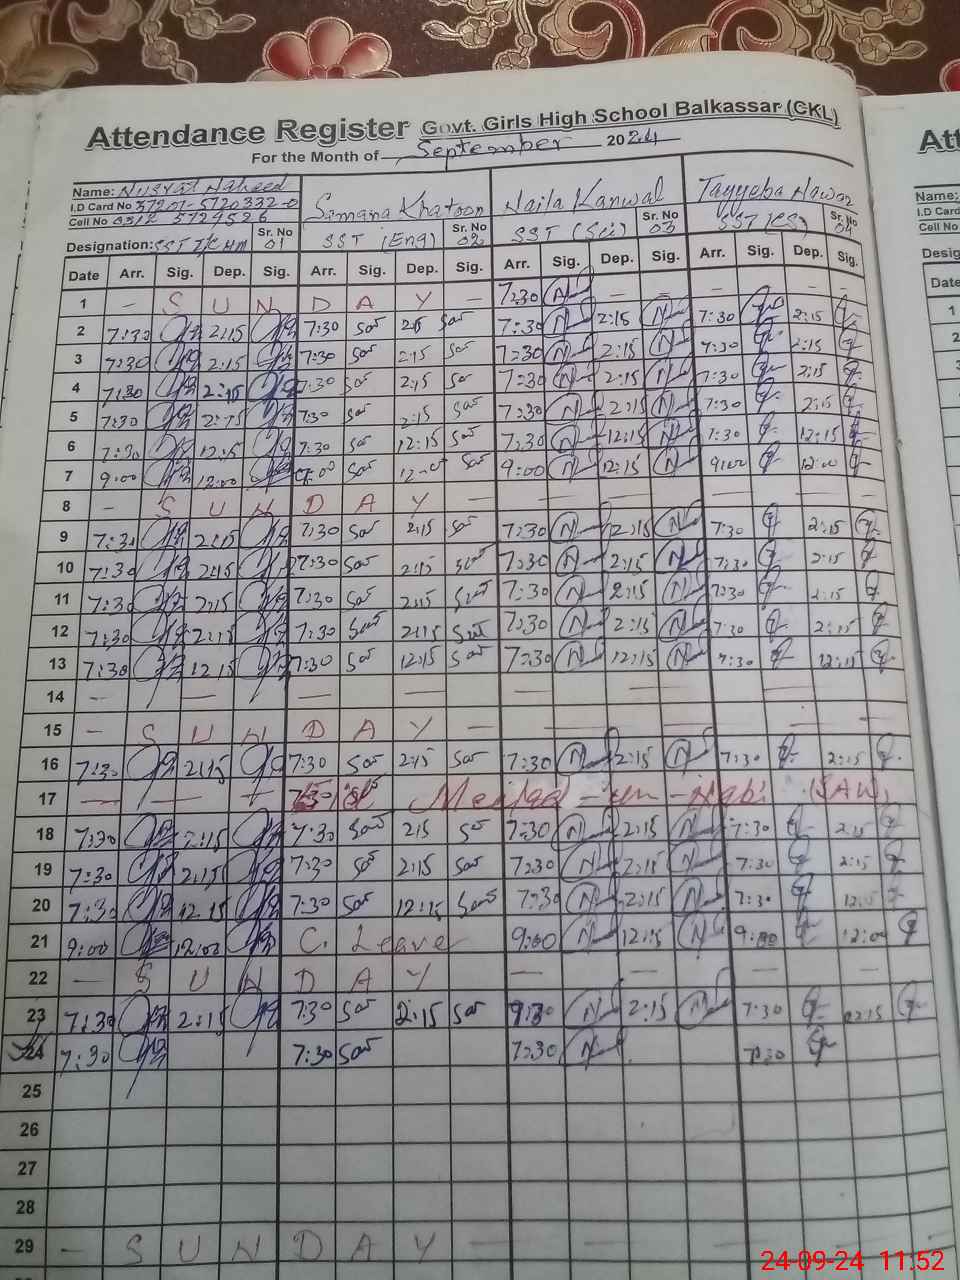 Attendance Register Govt. Girls High School Balkassar (CKL)
For the Month of September 2024
Name: Nusrat Naheed
I.D Card No 37201-5720332-0
Cell No 0312 5724526
Designation: SST I/C HM Sr. No 01
Samana Khatoon SST (Eng) Sr. No 02
Naila Kanwal SST (Sci) Sr. No 03
Tayyeba Nawaz SST (CS) Sr. No 04
Date Arr. Sig. Dep. Sig. Arr. Sig. Dep. Sig. Arr. Sig. Dep. Sig. Arr. Sig. Dep. Sig.
1 - S U N D A Y - 7:30 N - - - - - -
2 7:30 2:15 7:30 2:15 7:30 N 2:15 N 7:30 2:15
3 7:30 2:15 7:30 2:15 7:30 N 2:15 N 7:30 2:15
4 7:30 2:15 7:30 2:15 7:30 N 2:15 N 7:30 2:15
5 7:30 2:15 7:30 2:15 7:30 N 2:15 N 7:30 2:15
6 7:30 12:15 7:30 12:15 7:30 N 12:15 N 7:30 12:15
7 9:00 12:00 9:00 12:00 9:00 N 12:15 N 9:00 12:00
8 - S U N D A Y - - - - -
9 7:30 2:15 7:30 2:15 7:30 N 2:15 N 7:30 2:15
10 7:30 2:15 7:30 2:15 7:30 N 2:15 N 7:30 2:15
11 7:30 2:15 7:30 2:15 7:30 N 2:15 N 7:30 2:15
12 7:30 2:15 7:30 2:15 7:30 N 2:15 N 7:30 2:15
13 7:30 12:15 7:30 12:15 7:30 N 12:15 N 7:30 12:15
14 - - - - - - - -
15 - S U N D A Y - - - - -
16 7:30 2:15 7:30 2:15 7:30 N 2:15 N 7:30 2:15
17 - - - Eid Meelad-un-Nabi (SAW)
18 7:30 2:15 7:30 2:15 7:30 N 2:15 N 7:30 2:15
19 7:30 2:15 7:30 2:15 7:30 N 2:15 N 7:30 2:15
20 7:30 12:15 7:30 12:15 7:30 N 2:15 N 7:30 12:15
21 9:00 12:00 C. Leave 9:00 N 12:15 N 9:00 12:00
22 - S U N D A Y - - - - -
23 7:30 2:15 7:30 2:15 7:30 N 2:15 N 7:30 2:15
24 7:30 7:30 7:30 N 7:30
25
26
27
28
29 - S U N D A Y - - -
Att
Name:
I.D Card
Cell No
Desig
Date
1
2
3
24-09-24 11:52